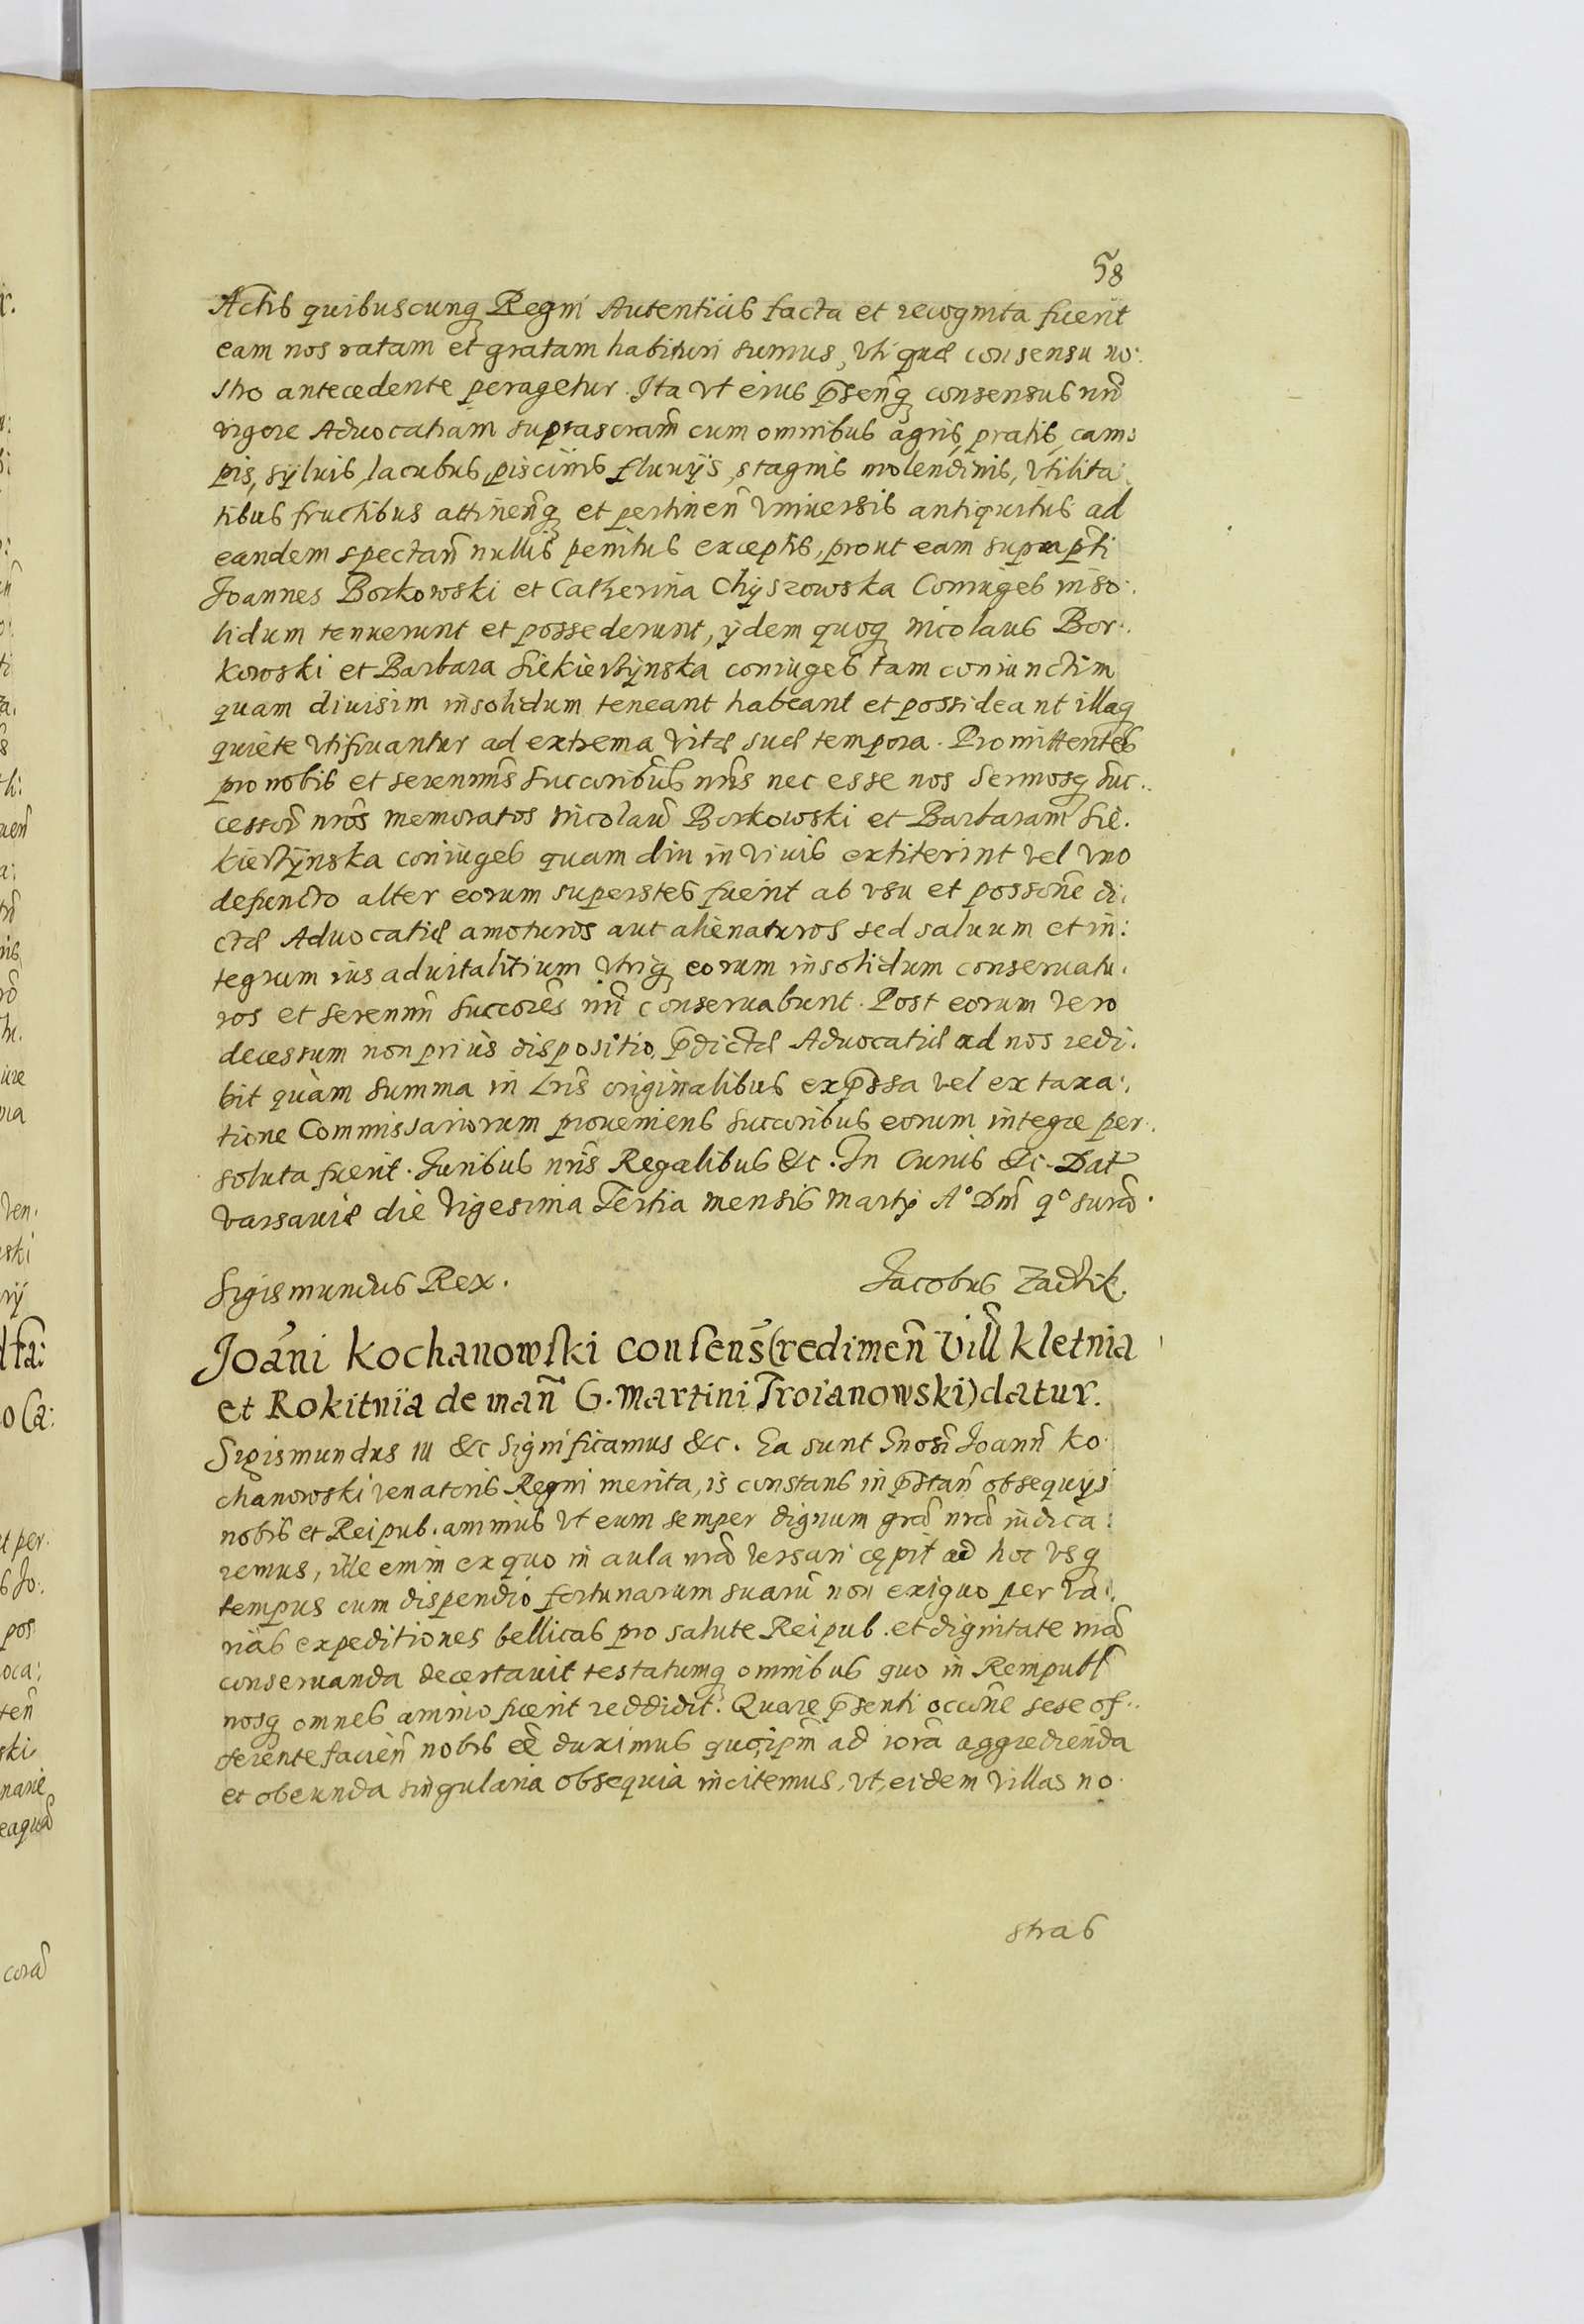 58
Actis quibuscunq Regni Autenticis facta et recognita fuerit
eam nos ratam et gratam habituri sumus, vti quæ consensu no:
stro antecedente peragetur. Ita vt eius p̃senq̃ consensus nri̇̃
vigore Aduocatiam suprascram̃ cum omnibus agris, pratis, cam:
pis, syluis, lacubus, piscinis fluuijs, stagnis molendinis, vtilita:
tibus fructibus attinen̄q et pertinen̄ vniuersis antiquitus ad
eandem spectan̄ nullis penitus exceptis, prout eam suprap̃ti
Joannes Borkowski et Catherina Chyszowska Coniuges inso:
lidum tenuerunt et possederunt, ijdem quoq Nicolaus Bor:
kowski et Barbara Siekierzynska coniuges tam coniunctim
quam diuisim insolidum teneant habeant et possideant illaq
quiete vtifruantur ad extrema vitæ suæ tempora. Promittentes
pro nobis et serenmis Succoribus nris nec esse nos Sermosq Suc:
cessor̃ nrõs memoratos Nicolaũ Borkowski et Barbaram Sie:
kierzynska coniuges quam diu in viuis extiterint vel vno
defuncto alter eorum superstes fuerit ab vsu et possone di:
ctæ Aduocatiæ amoturos aut alienaturos sed saluum et in:
tegrum ius aduitalitium vtriq eorum insolidum conseruatu:
ros et serenmi Succores nri conseruabunt. Post eorum vero
decessum non prius dispositio p̃dictæ Aduocatiæ ad nos redi:
bit quàm summa in Lris̃ originalibus exp̃ssa vel ex taxa:
tione Commissariorum proueniens Succoribus eorum integre per:
soluta fuerit. Juribus nris̃ Regalibus &c. In Cuius &c. Dat̃
Varsauiæ die Vigesima Tertia mensis Martij A° Dni̇̃ q° supra
Sigismundus Rex.
Jacobus Zadzik.
Joãni Kochanowski consens̃ (redimeñ Vill̃ Kletnia
et Rokitnia de mañ G. Martini Troianowski) datur.
Sigismundus III &c Significamus &c. Ea sunt Gnosi Joanñ Ko:
chanowski venatoris Regni merita, is constans in p̃stañ obsequijs
nobis et Reipub. animus vt eum semper dignum grã nrã iudica:
remus, ille enim ex quo in aula nrã versari cępit ad hoc vsq
tempus cum dispendio fortunarum suarũ non exiguo per va:
rias expeditiones bellicas pro salute Reipub. et dignitate nrã
conseruanda decertauit testatumq omnibus quo in Rempubl̃
nosq omnes animo fuerit reddidit. Quare p̃senti occone sese of:
ferente facieñ nobis eẽ duximus quo ipm̃ ad iorã aggredienda
et obeunda singularia obsequia incitemus, vt eidem villas no:
stras